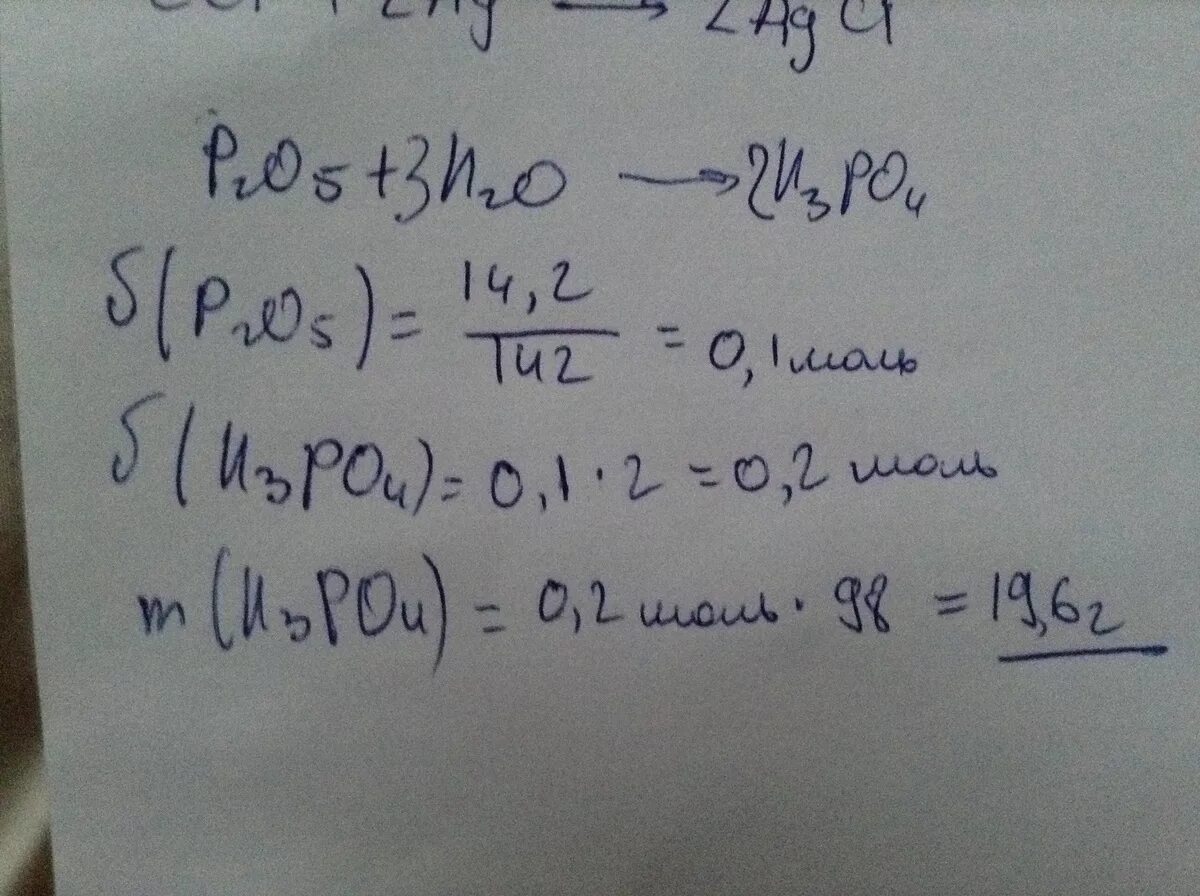 2Ag → 2AgCl
P₂O₅ + 3H₂O → 2H₃PO₄
δ(P₂O₅) = 14,2 / 142 = 0,1 моль
δ(H₃PO₄) = 0,1 · 2 = 0,2 моль
m(H₃PO₄) = 0,2 моль · 98 = 19,6 г